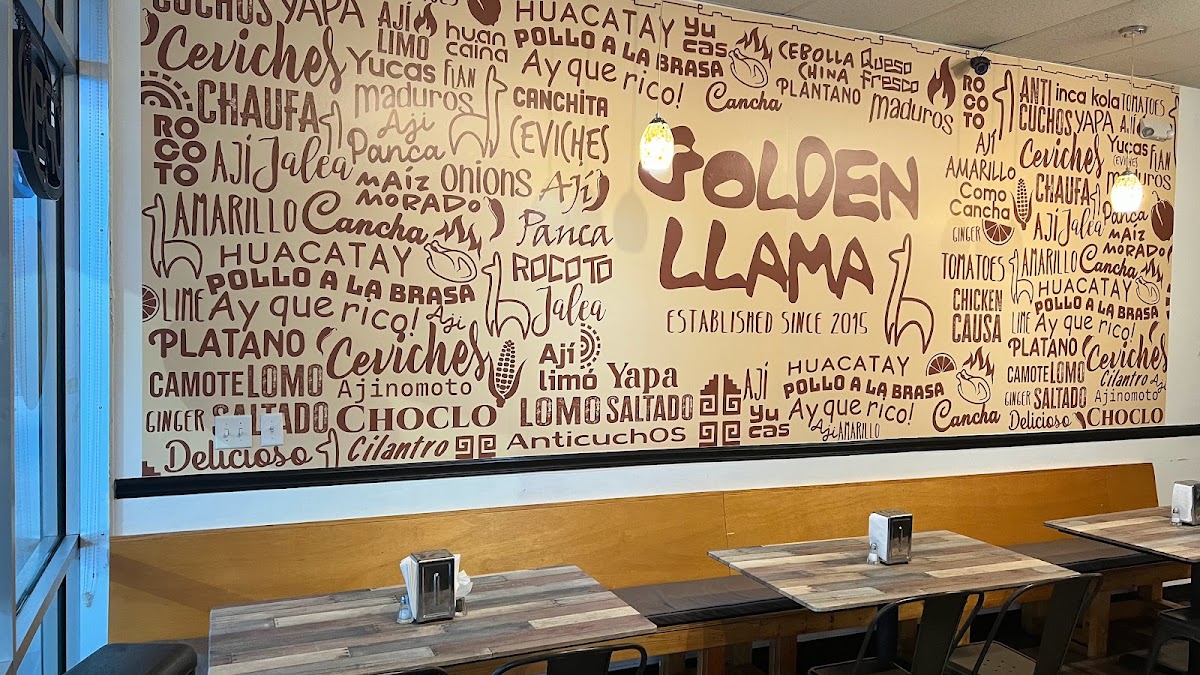 CUCHOS YAPA AJÍ LIMO huancaina HUACATAY Yucas
Ceviches Yucas FLAN POLLO A LA BRASA CEBOLLA CHINA Queso fresco
CHAUFA maduros Ay que rico! PLANTANO maduros
ROCOTO Aji CANCHITA Cancha ROCOTO ANTICUCHOS inca kola TOMATOES
AJÍ Jalea Panca CEVICHES YAPA
MAÍZ MORADO onions Ají GOLDEN AJÍ AMARILLO Ceviches Yucas FLAN
CEVICHES maduros
AMARILLO Cancha Panca LLAMA Como Cancha CHAUFA
HUACATAY ROCOTO GINGER AJÍ Jalea Panca MAÍZ MORADO
POLLO A LA BRASA Jalea ESTABLISHED SINCE 2015 TOMATOES AMARILLO Cancha
LIME Ay que rico! Aji CHICKEN CAUSA HUACATAY
POLLO A LA BRASA
PLATANO Ceviches Ají limó Yapa AJÍ HUACATAY LIME Ay que rico!
CAMOTE LOMO SALTADO Ajinomoto LOMO SALTADO Yucas POLLO A LA BRASA PLATANO Ceviches
GINGER CHOCLO Ay que rico! Cancha CAMOTE LOMO SALTADO Cilantro Aji
Ajinomoto
Delicioso Cilantro Anticuchos Aji AMARILLO GINGER Delicioso CHOCLO